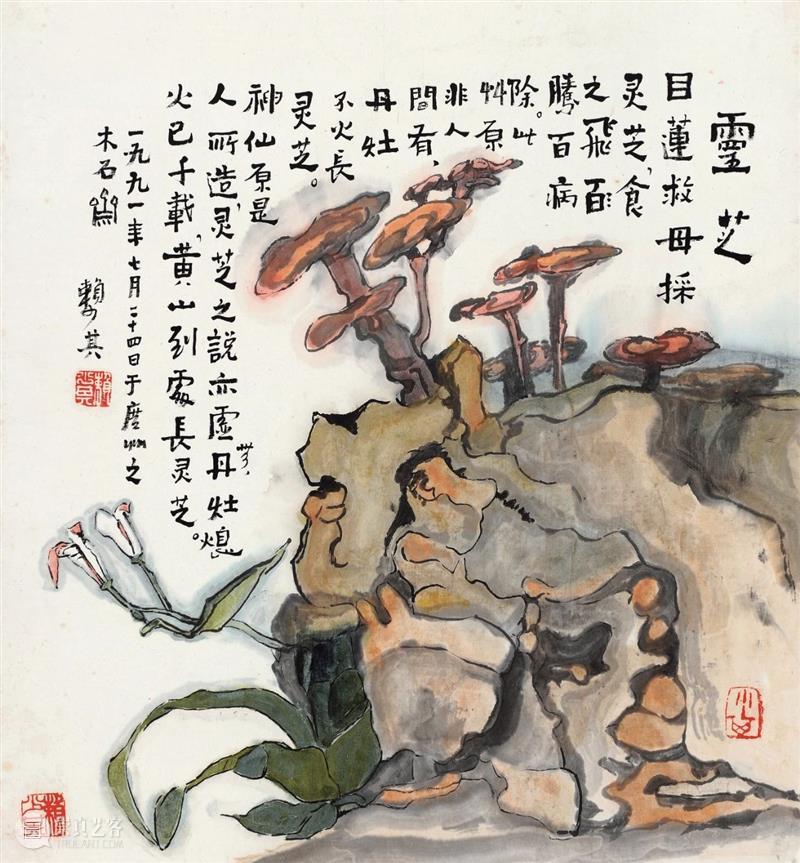 靈芝
目蓮救母採
灵芝,食
之飛
騰百病
除。此
艸原
非人
間有,
丹灶
不火長
灵芝。
神仙原是
人所造,灵芝之説亦虛夢,丹灶熄
火已千載,黄山到處長灵芝。
一九九一年七月二十四日于廣州之
木石齋 賴少其
崇真艺客
TRULART.COM